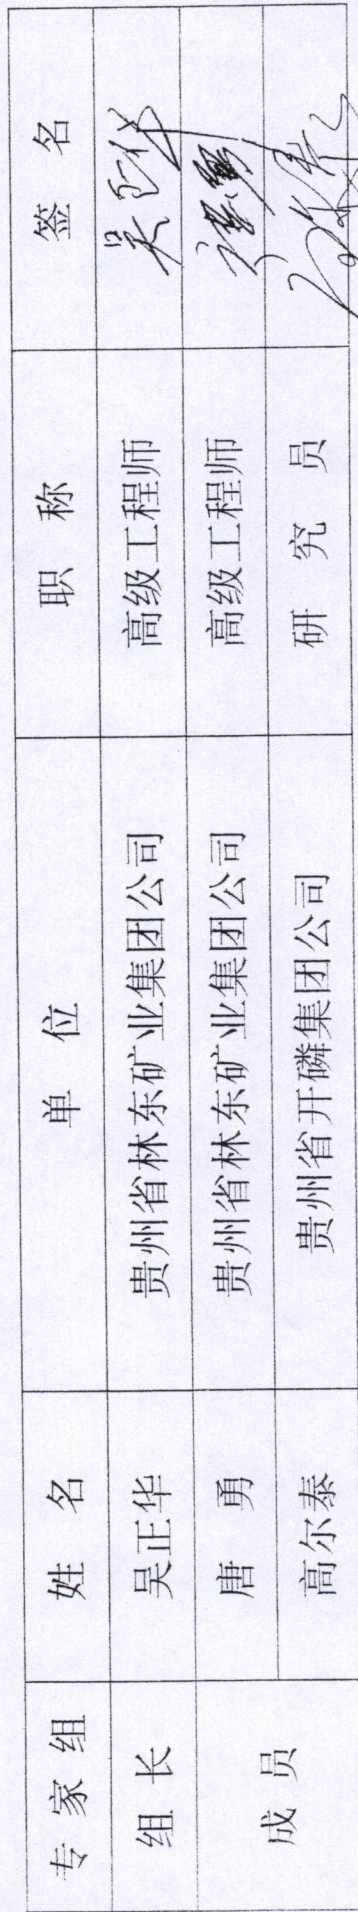 专家组 姓名 单位 职称 签名
组长 吴正华 贵州省林东矿业集团公司 高级工程师 吴正华
成员 唐勇 贵州省林东矿业集团公司 高级工程师
高尔泰 贵州省开磷集团公司 研究员